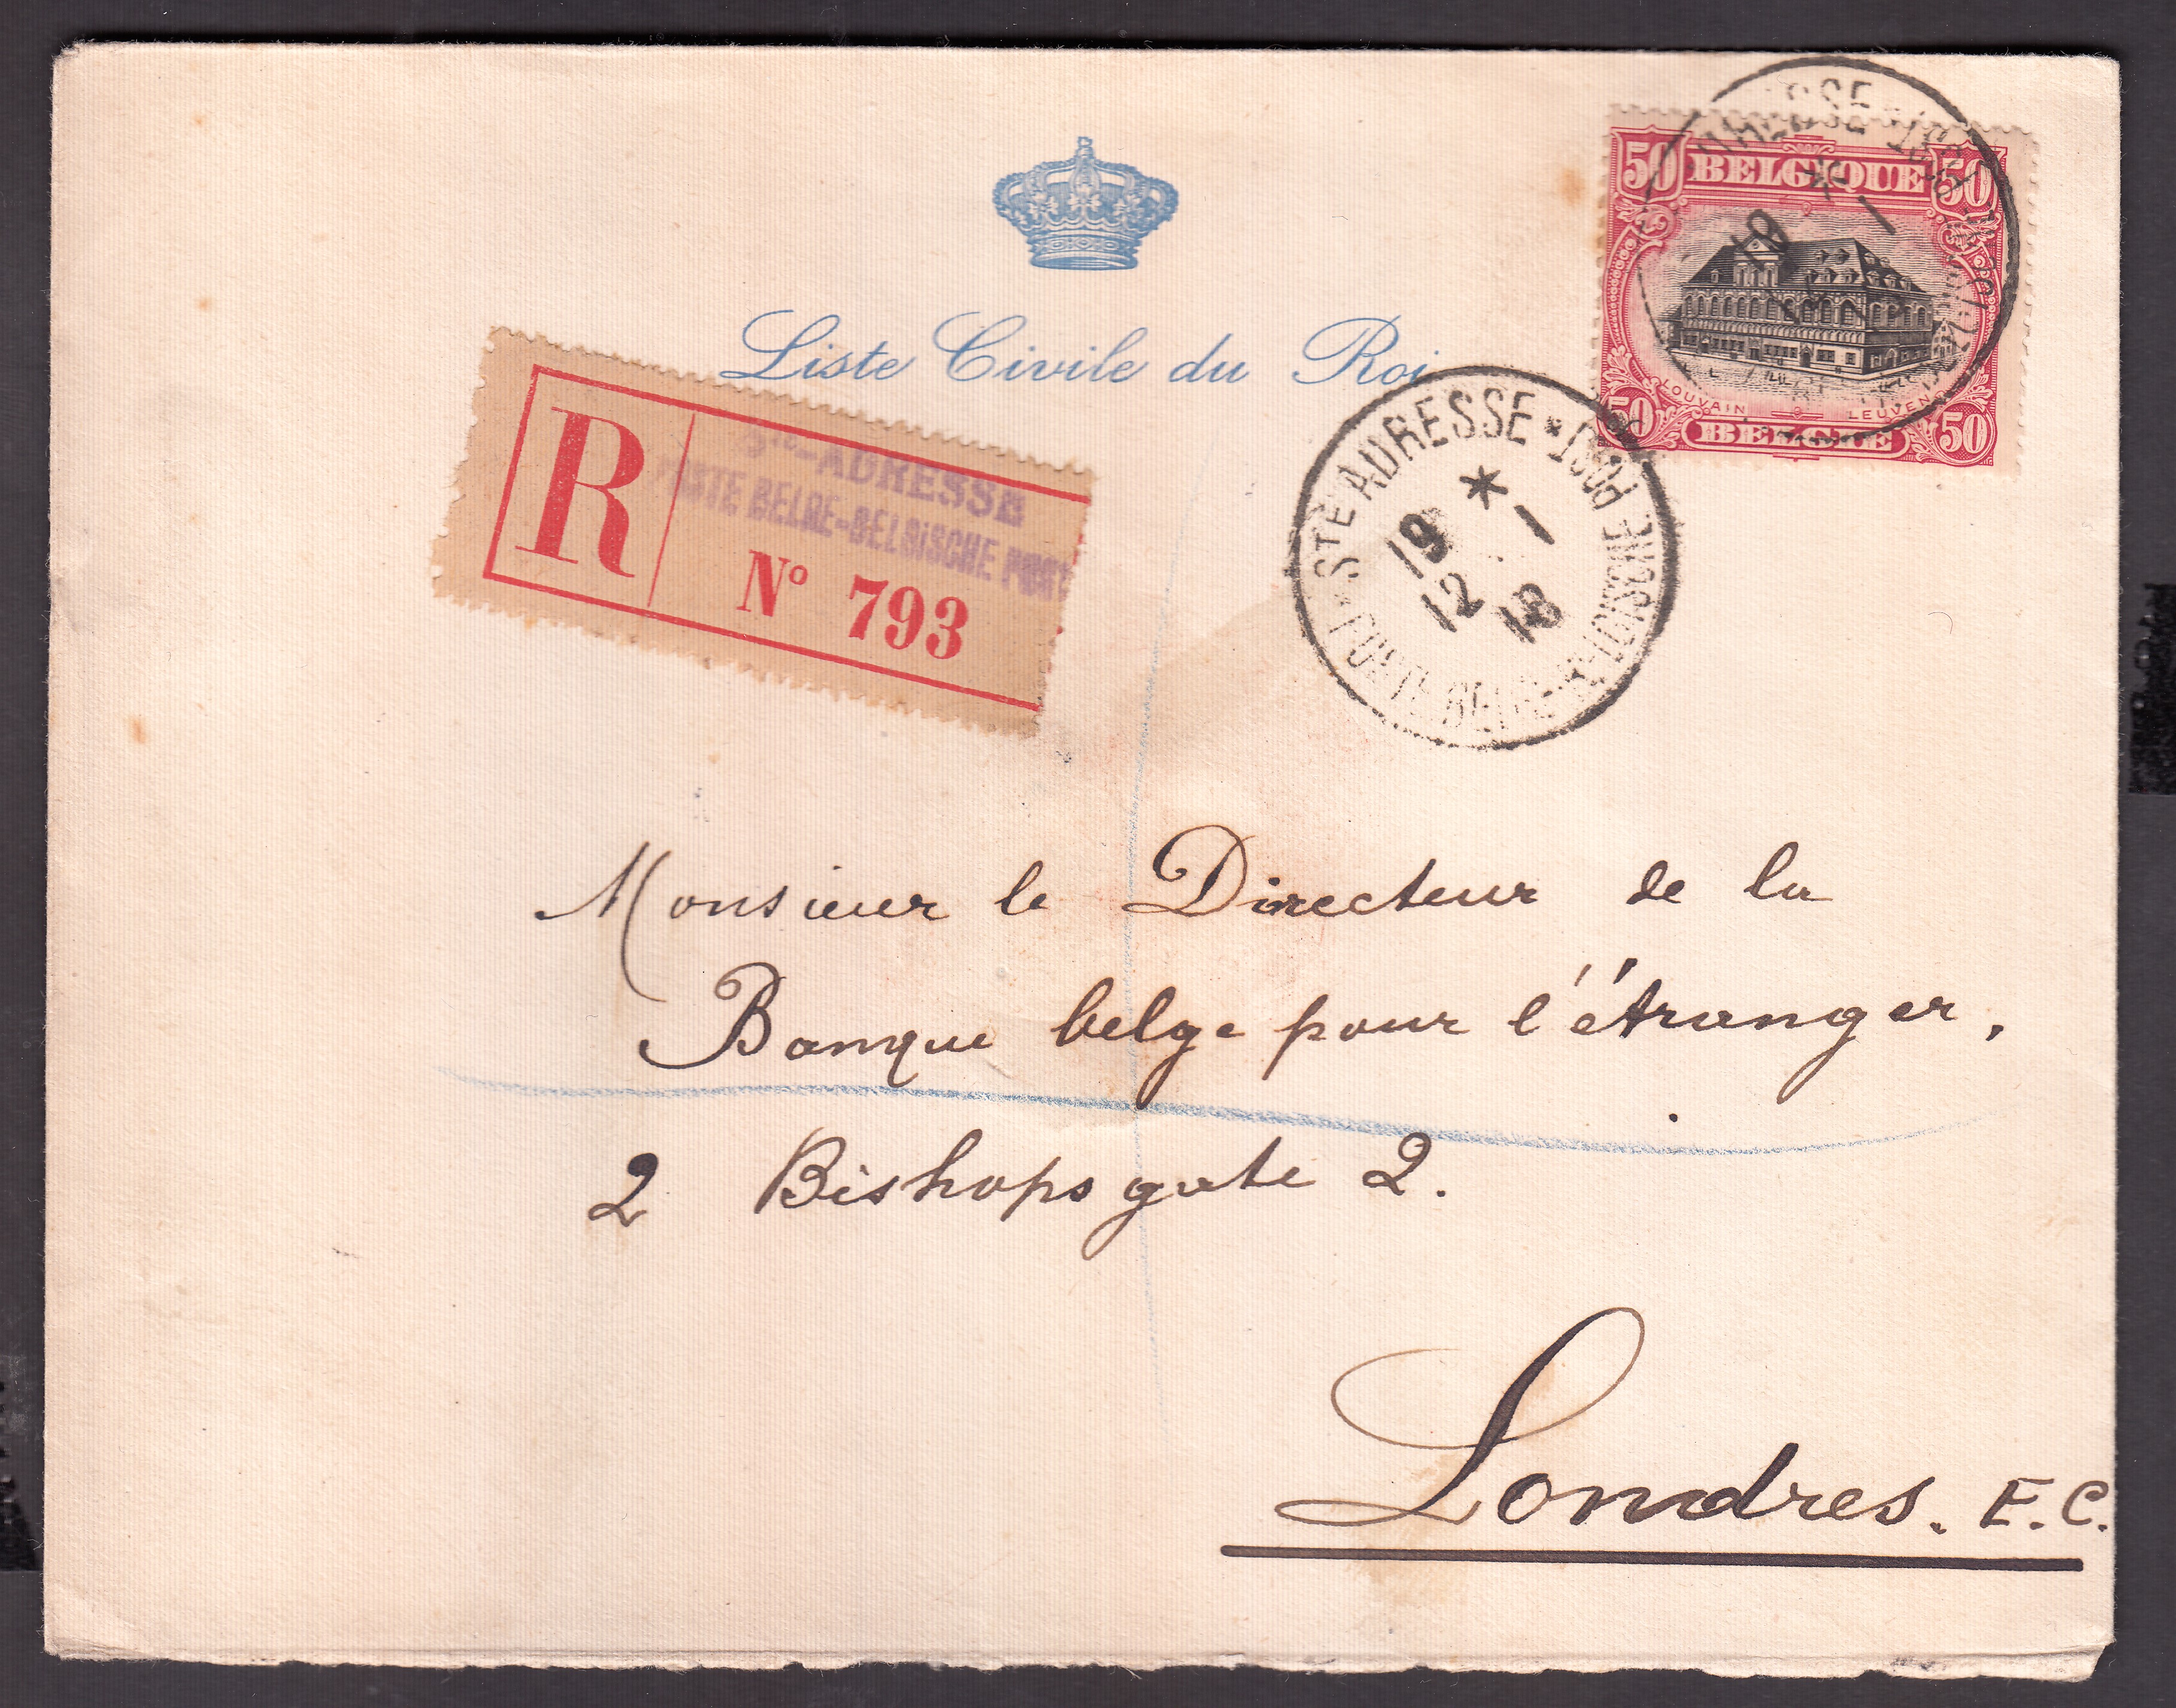 Liste Civile du Roi
50 BELGIQUE 50
LOUVAIN LEUVEN
50 BELGIE 50
R
Ste-ADRESSE
POSTE BELGE-BELGISCHE POST
No 793
STE ADRESSE * POSTE BELGE-BELGISCHE POST *
19 1
12 18
Monsieur le Directeur de la
Banque belge pour l'étranger,
2 Bishopsgate 2.
Londres. E.C.